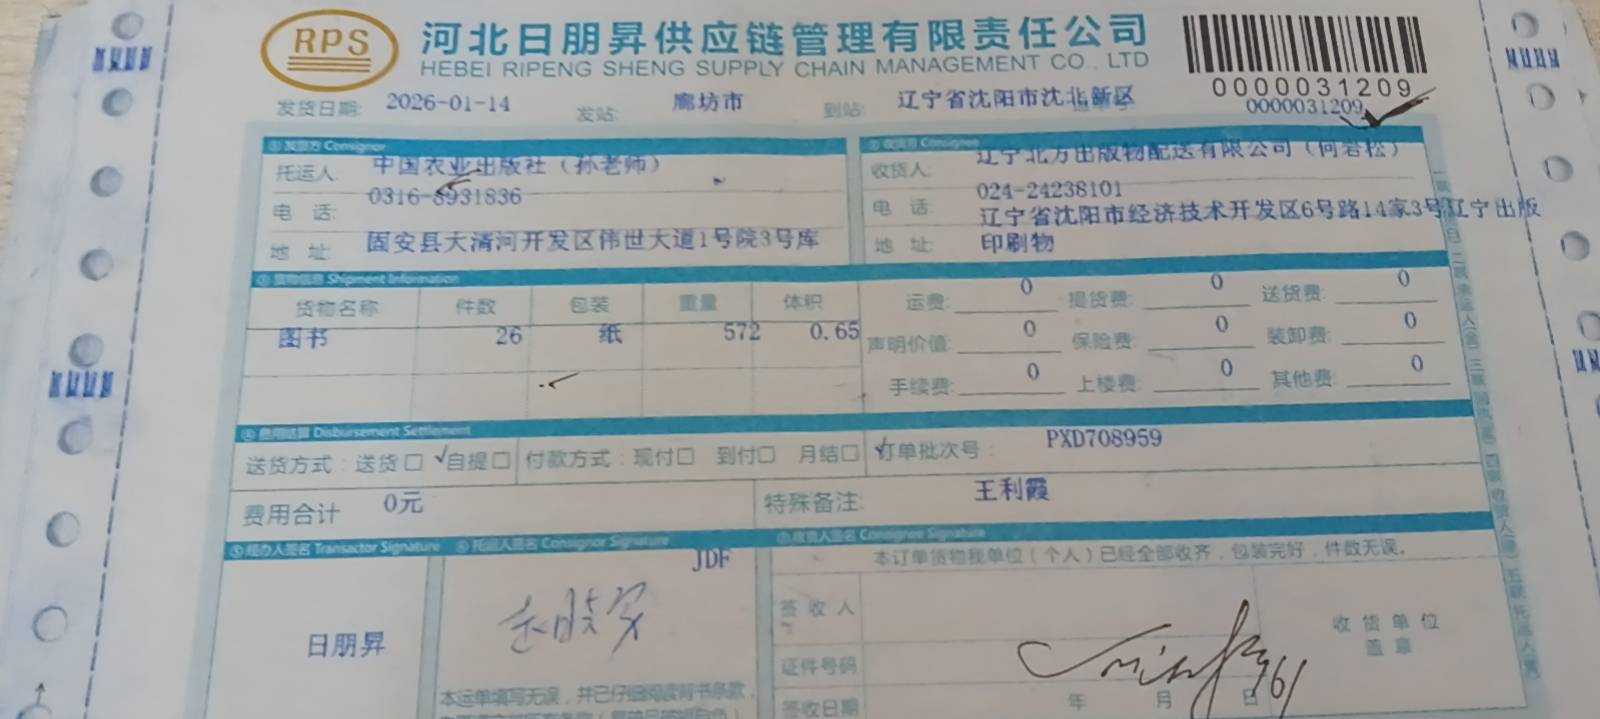 RPS
河北日朋昇供应链管理有限责任公司
HEBEI RIPENG SHENG SUPPLY CHAIN MANAGEMENT CO., LTD
0000031209
0000031209
发货日期: 2026-01-14 发站: 廊坊市 到站: 辽宁省沈阳市沈北新区
①发货方 Consignor
托运人: 中国农业出版社（孙老师）
电 话: 0316-8931836
地 址: 固安县大清河开发区伟世大道1号院3号库
②收货方 Consignee
收货人: 辽宁北方出版物配送有限公司（何岩松）
电 话: 024-24238101
地 址: 辽宁省沈阳市经济技术开发区6号路14家3号辽宁出版
印刷物
③货物信息 Shipment Information
货物名称 件数 包装 重量 体积
图书 26 纸 572 0.65
运费: 0 提货费: 0 送货费: 0
声明价值: 0 保险费: 0 装卸费: 0
手续费: 0 上楼费: 0 其他费: 0
④费用结算 Disbursement Settlement
送货方式: 送货□ √自提□ 付款方式: 现付□ 到付□ 月结□ 订单批次号: PXD708959
费用合计 0元 特殊备注: 王利霞
⑤经办人签名 Transactor Signature ⑥托运人签名 Consignor Signature ⑦收货人签名 Consignee Signature
JDF
日朋昇
本运单填写无误，并已仔细阅读背书条款，
本订单货物我单位（个人）已经全部收齐，包装完好，件数无误。
签收人
证件号码
签收日期 年 月 日
收货单位
盖章